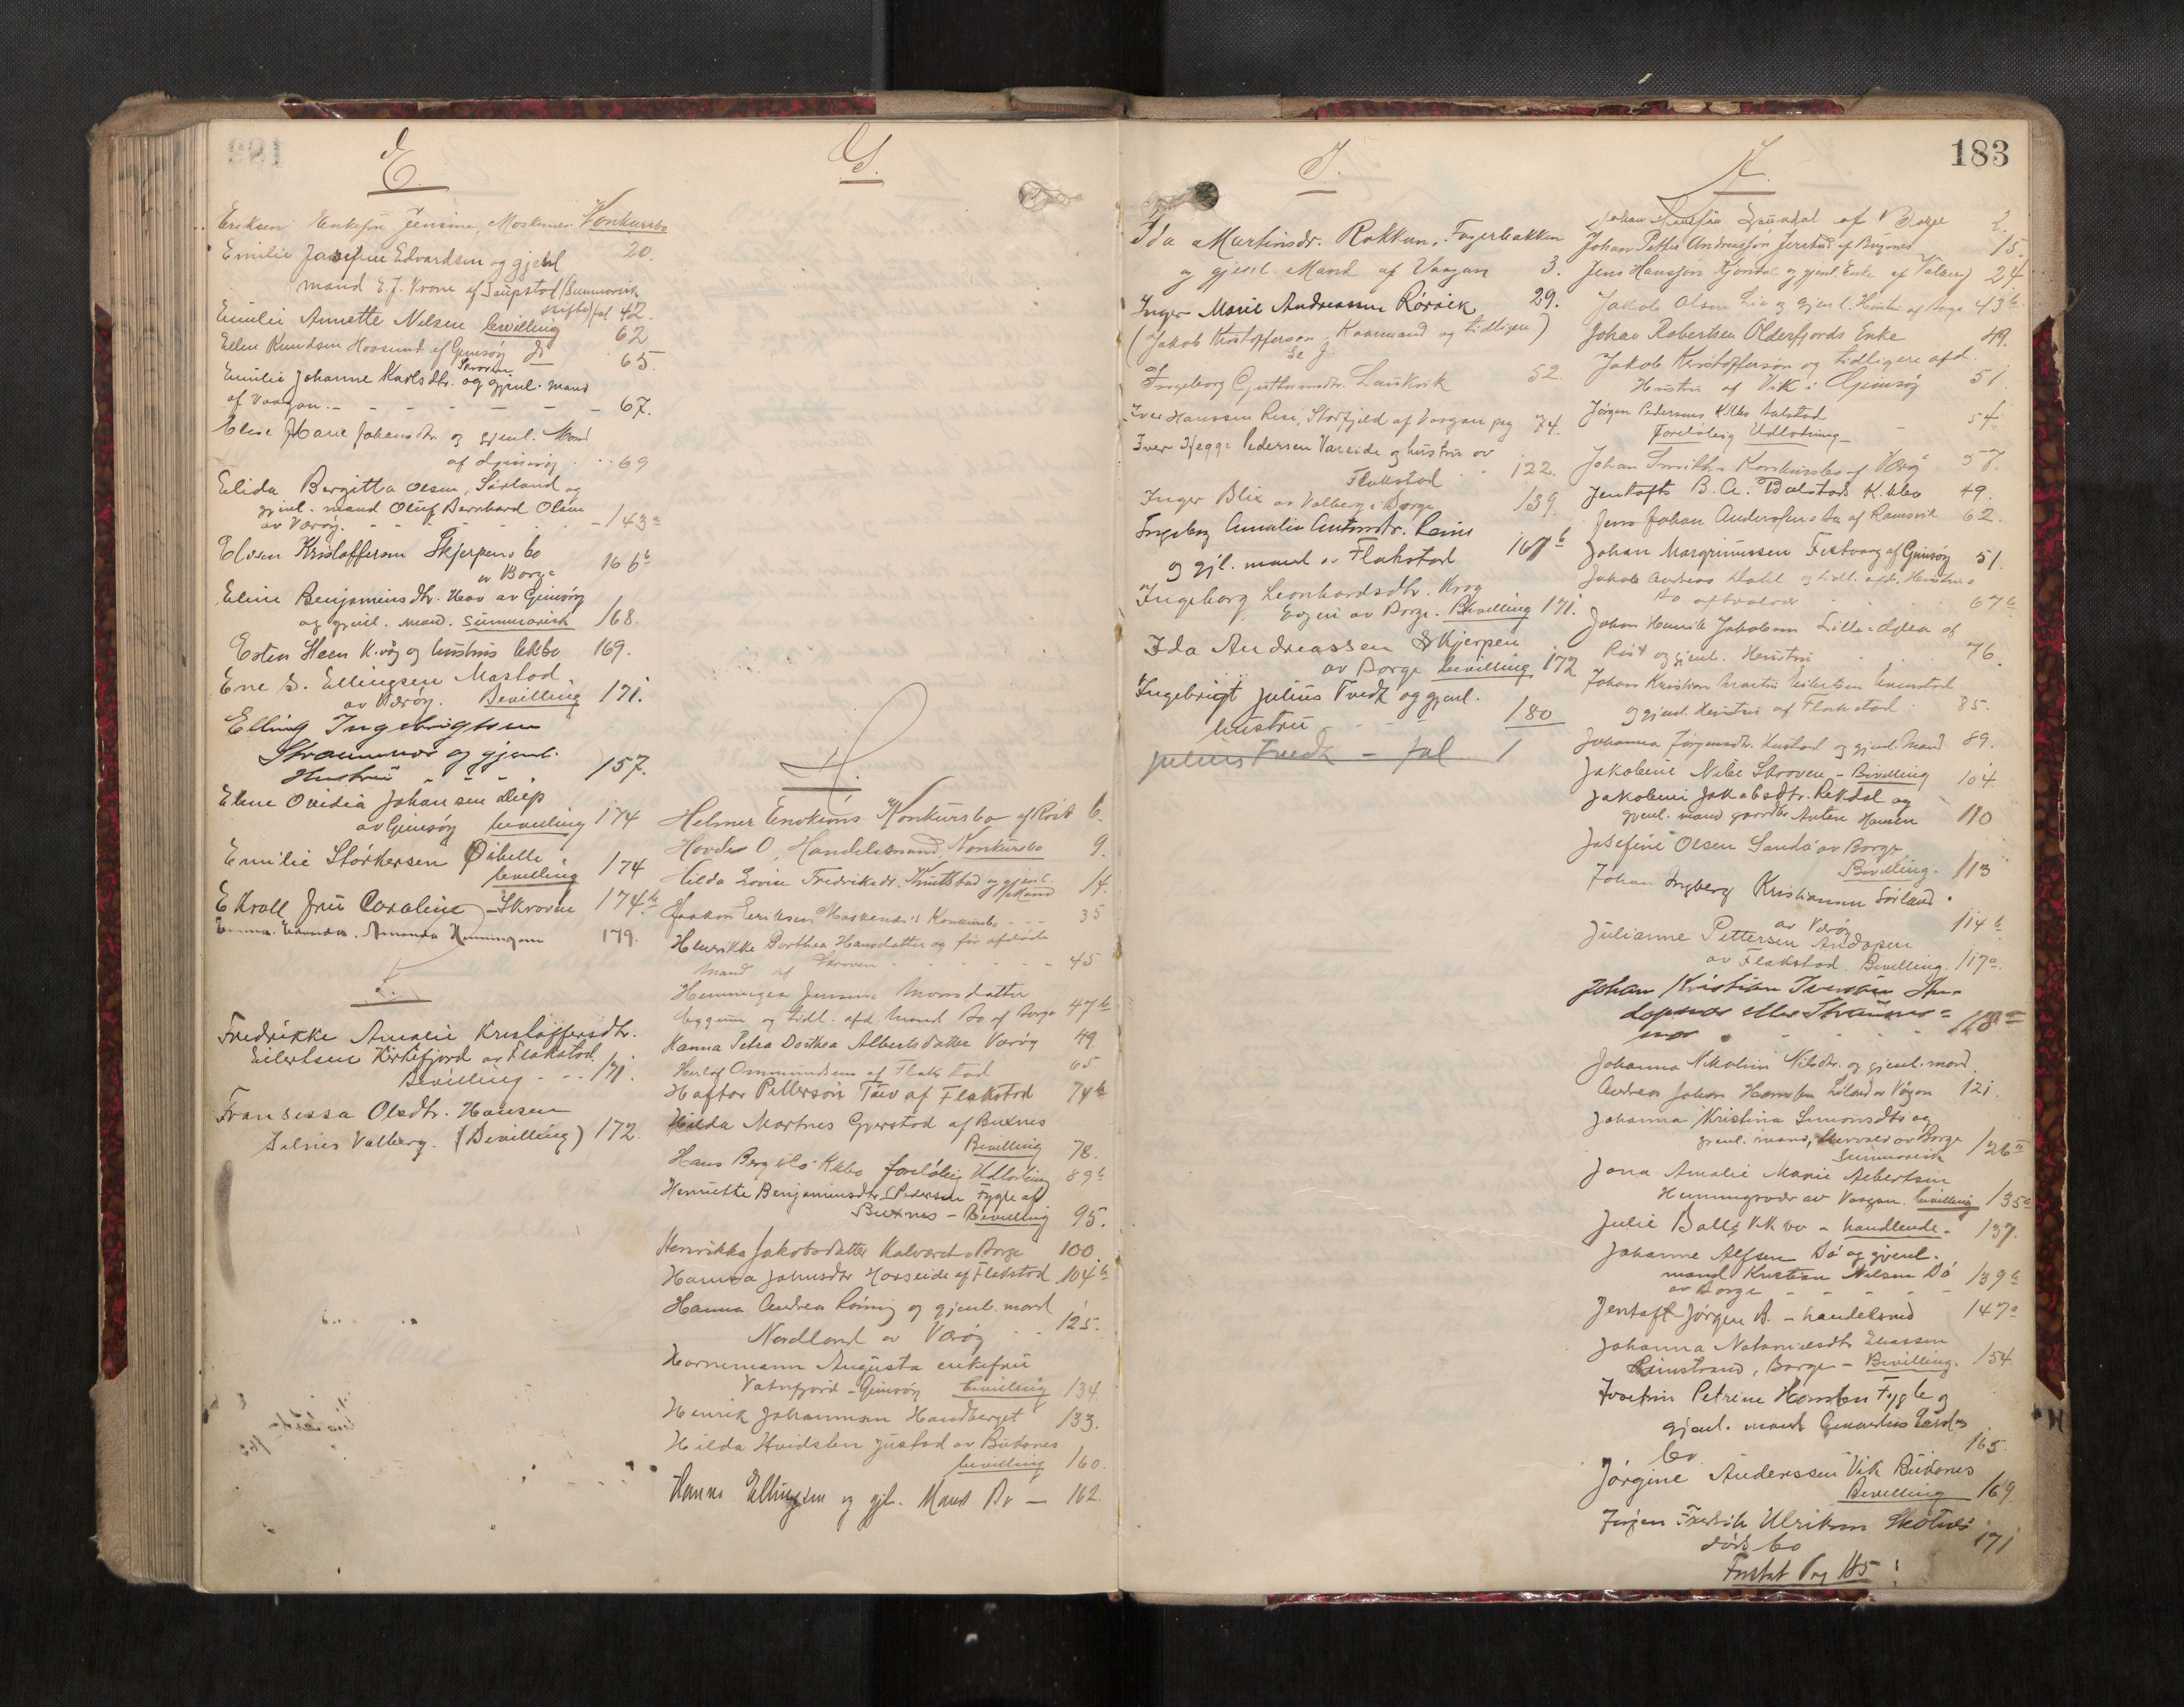 E.
Eriksen Enkefru Jensine, Moskenes Konkursbo
20.
Emilie Josefine Edvardsen og gjenl
mand E. J. Krone af Saupstad (Summarisk
skifte) fol 42.
Emilie Annette Nilsen bevilling 62
Ellen Knudsen Hovsund af Gimsøy 65.
Emilie Johanne Karlsdtr. Skroven og gjenl. mand
af Vaagan. - - - - - - 67.
Elise Marie Johansdtr og gjenl. Mand
af Gimsøy .. 69
Elida Bergitta Olsen, Sørland og
gjenl. mand Oluf Bernhard Olsen
av Værøy. - - - - - 143a
Elesen Kristoffersen Skjerpens bo
av Borge 166b
Eline Benjaminsdtr. Hov av Gimsøy
og gjenl. mand. Summarisk 168.
Esten Steen K.våg og hustrus bo 169.
Ene S. Ellingsen Mastad
av Værøy. Bevilling 171.
Elling Ingebrigtsen
Straumnes og gjenl.
Hustru - - - - 157.
Eline Ovidia Johansen Diep
av Gimsøy bevilling 174
Emilie Størkersen
bevilling 174
Ekroll Fru Caroline - Skroven 174b
Emma Amanda Henningsen 179.
F.
Fredrikke Amalie Kristoffersdtr.
Eilertsen Kirkefjord av Flakstad
Bevilling - - - 171.
Fransessa Olsdtr. Hansen
Salnes Valberg. (Bevilling) 172.
G.
H.
Helmer Enoksens Konkursbo af Røst 6.
Hovde O, Handelsmand, Konkursbo 9.
Hilda Lovise Fredriksdr. Knutstad og gjenl.
Mand 14.
Haakon Eriksen Moskenæs Konkursbo - - - 35
Henrikke Dorthea Hansdatter og før afdøde
Mand af Skroven - - - - - 45
Henningea Jensine Monsdatter
og tidl. afd. Mand Bo af Borge 47b
Hanna Petra Dorthea Albertsdatter Værøy 49.
Herlof Ommundsens af Flakstad 65.
Haftor Pettersøn Tuv af Flakstad 74b
Hilda Mortnes Gjerstad af Buxnes
Bevilling 78.
Hans Berg Kkbo foreløbig Udlodning 89b
Henriette Benjaminsdtr. Pedersen Fygle af
Buxnes - Bevilling 95.
Henrikke Jakobsdatter Kalvaret Borge 100.
Hanna Johnsdtr Horseide af Flakstad 104b
Hanna Andrea Rønnig og gjenl. mand
Nordland av Værøy .. 125.
Hornemann Augusta enkefru
Vatnfjord - Gimsøy bevilling 134.
Henrik Johannesen Handberget 133.
Hilda Hvidsten Justad av Buksnes
bevilling 160.
Hanna Ellingsen og gjl. Mands Bo - 162.
I.
Ida Martinsdr. Rokkun, Fagerbakken
og gjenl. Mand af Vaagan 3.
Inger Marie Andreassen Rørvik 29.
(Jakob Kristoffersen Kaarmand og tidligere)
se J.
Ingeborg Guttormsdtr. Laukvik 52.
Iver Hanssen Rise, Storfjeld af Vaagan pag 74.
Iver Hegge Pedersen Vareide og hustru av
Flakstad .. 122.
Inger Blix av Valberg i Borge 139.
Ingeborg Amalie Antonsdtr. Reine
og gjl. mand av Flakstad 167b
Ingeborg Leonhardsdtr. Krog
Eggum av Borge. Bevilling 171.
Ida Andreassen Skjerpen
av Borge bevilling 172
Ingebrigt Julius Tvedt og gjenl.
hustru - - - 180
Julius Tvedt - fol 1
183
J.
Johan af Borge 2.
Johan Petter Andreassøn Jerstad af Buxnes 15.
Jens Hanssøn og gjenl. Enke af 24.
Jakob Olsen Lie og gjenl. Hustru af Borge 43b
Johan Robertsen Olderfjords Enke 49.
Jakob Kristoffersøn og tidligere afd.
Hustru af Vik i Gimsøy 51.
Jørgen Pedersens KKbo Balstad
Foreløbig Udlodning - 54
Johan Smiths Konkursbo af Værøy 57.
Jentofts B. A. Balstad K.kbo 49.
Jens Johan Anderssens bo af Ramsvik 62.
Johan Margrinussen Festvaag af Gimsøy 51.
Jakob Andreas Dahl og tidl. afd. Hustrus
bo 67b
Johan Henrik Jakobsen Lille af
Røst og gjenl. Hustru 76.
Johan Kristian Martin Eilertsen
og gjenl. Hustru af Flakstad. 85.
Johanna Jørgensdtr. Hustad og gjenl. Mand 89.
Jakobine Nilse Skroven - Bevilling 104
Jakobine Jakobsdtr. Rekdal og
gjenl. mand gaardbr. Anton Hansen 110
Josefine Olsen Sanda av Borge
Bevilling. 113
Johan Ingberg Kristiansen Sørland.
av Værøy 114b
Julianne Pettersen Andopen
av Flakstad. Bevilling. 117a.
Johan Kristian Iversen
eller Straumnes
128a
Johanna Nikoline Nilsdtr. og gjenl. mand
Andreas Johan Hansen av Vågan 121.
Johanna Kristina Simonsdtr og
gjenl. mand, av Borge
Summarisk 126a
Jona Amalie Marie Albertsen
Henningsvær av Vaagan. bevilling 135a
Julie Balls Kkbo - handlende - 137.
Johanne Alfsen Bø og gjenl.
mand Kristian Nilsen Bø
av Borge - - - - - 139b
Jentoft Jørgen B. - handelsmd 147a
Johanna Natanielsdtr Eliassen
Limstrand, Borge - Bevilling. 154.
Josefine Petrine Hansen Fygle og
gjenl. mand
bo 165.
Jørgine Anderssen Vik Buksnes
Bevilling 169.
Jørgen Fredrik Ulriksen Skotnes
døds bo 171
Fortsat Pag 185